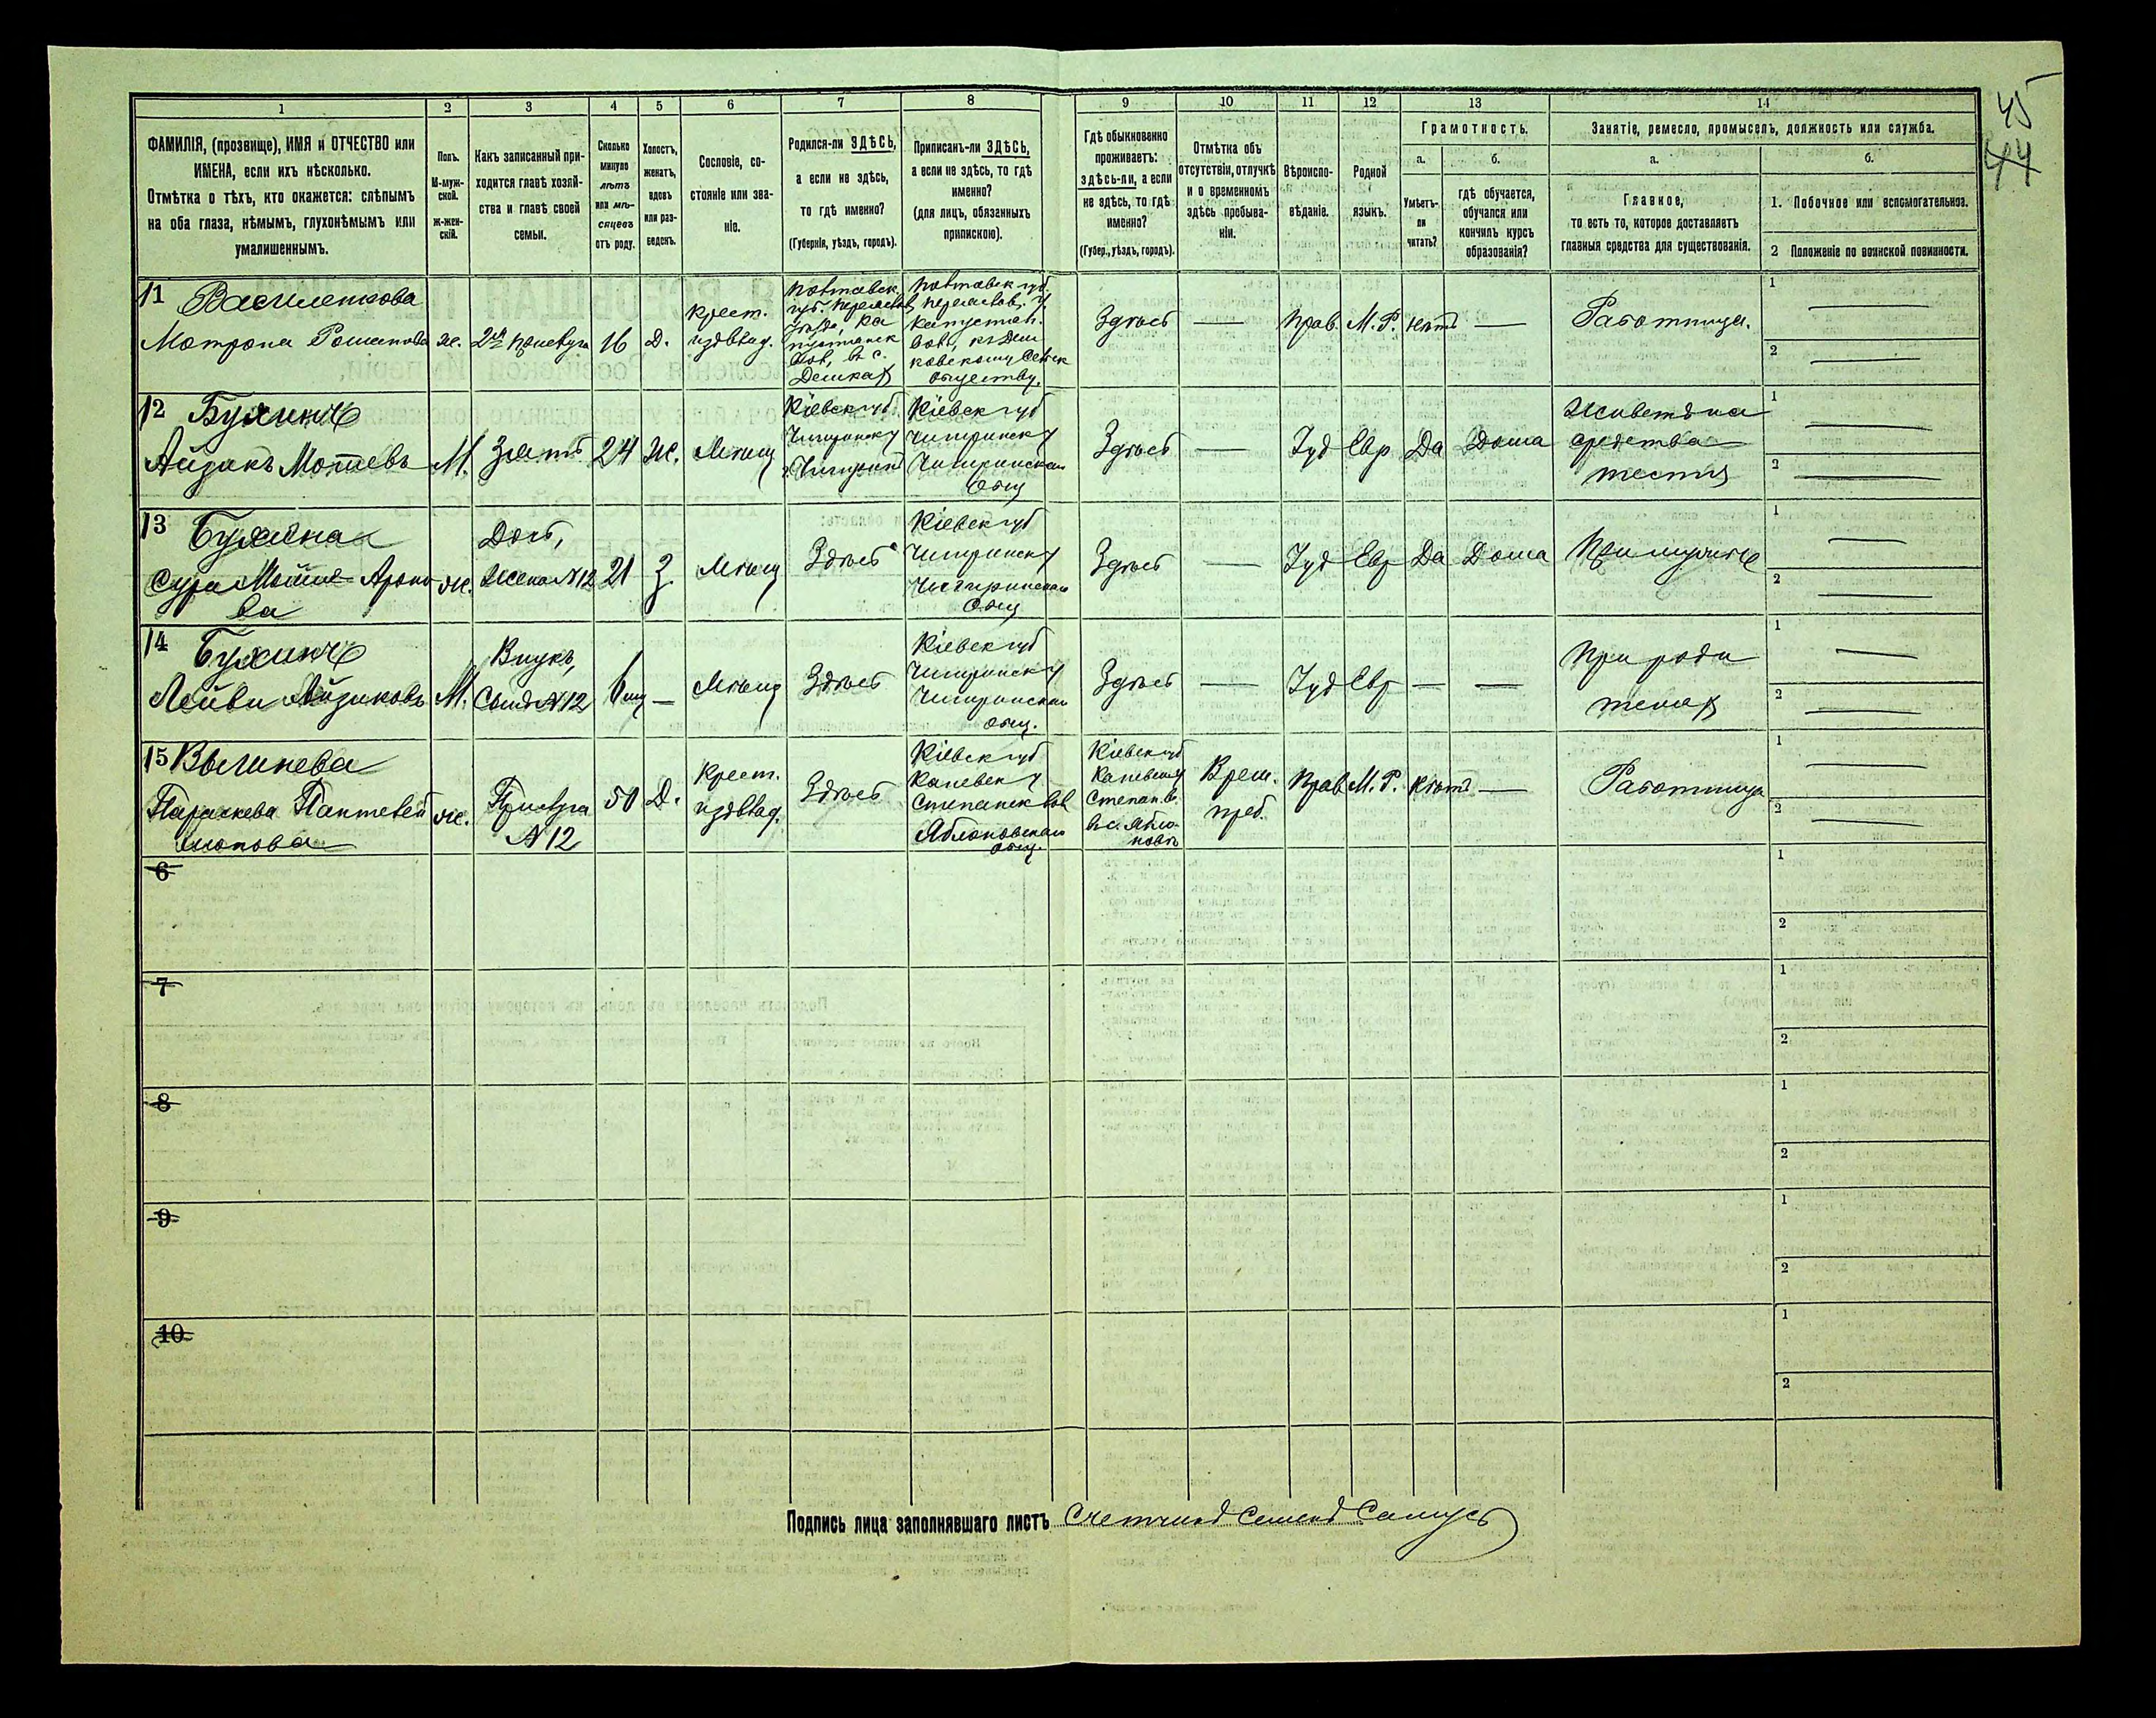 45
44
1 2 3 4 5 6 7 8 9 10 11 12 13 14
ФАМИЛІЯ, (прозвище), ИМЯ и ОТЧЕСТВО или
ИМЕНА, если ихъ нѣсколько.
Отмѣтка о тѣхъ, кто окажется: слѣпымъ
на оба глаза, нѣмымъ, глухонѣмымъ или
умалишеннымъ.
Полъ.
М-муж-
ской.
ж-жен-
скій.
Какъ записанный при-
ходится главѣ хозяй-
ства и главѣ своей
семьи.
Сколько
минуло
лѣтъ
или мѣ-
сяцевъ
отъ роду.
Холостъ,
женатъ,
вдовъ
или раз-
веденъ.
Сословіе, со-
стояніе или зва-
ніе.
Родился-ли ЗДѢСЬ,
а если не здѣсь,
то гдѣ именно?
(Губернія, уѣздъ, городъ).
Приписанъ-ли ЗДѢСЬ,
а если не здѣсь, то гдѣ
именно?
(для лицъ, обязанныхъ
припискою).
Гдѣ обыкновенно
проживаетъ:
здѣсь-ли, а если
не здѣсь, то гдѣ
именно?
(Губер., уѣздъ, городъ).
Отмѣтка объ
отсутствіи, отлучкѣ
и о временномъ
здѣсь пребыва-
ніи.
Вѣроиспо-
вѣданіе.
Родной
языкъ.
Грамотность.
а.
Умѣетъ-
ли
читать?
б.
гдѣ обучается,
обучался или
кончилъ курсъ
образованія?
Занятіе, ремесло, промыселъ, должность или служба.
а.
Главное,
то есть то, которое доставляетъ
главныя средства для существованія.
б.
1. Побочное или вспомогательное.
2 Положеніе по воинской повинности.
11 Василенкова
Мотрона Романова
ж.
2ая прислуга
16
Д.
крест.
изъ влад.
Полтавск.
губ. Переяслав.
Дешках
Полтавск губ.
Переяслав. у
обществу.
Здѣсь
—
Прав.
М. Р.
нѣтъ
—
Работница.
1 —
2 —
12 Бухинъ
Айзикъ Мотневъ
М.
Зять
24
Ж.
Мѣщ
Кіевск губ
Чигиринск у
Кіевск губ
Чигиринск у
Чигиринскаго
общ
Здѣсь
—
Іуд
Евр
Да
Дома
Живетъ на
средства
тестя
1 —
2 —
13 Бухина
Сура Мойше-Ароно
ва
ж.
Дочь,
Жена N12
21
З.
Мѣщ
Здѣсь
Кіевск губ
Чигиринск у
Чигиринскаго
общ
Здѣсь
—
Іуд
Евр
Да
Дома
При мужѣ
1 —
2 —
14 Бухинъ
Лейви Айзиковъ
М.
Внукъ,
Сынъ N12
—
Мѣщ
Здѣсь
Кіевск губ
Чигиринск у
Чигиринскаго
общ.
Здѣсь
—
Іуд
Евр
—
—
При роди
телях
1 —
2 —
15
Параскева Пантелей
монова
ж.
Прислуга
N 12
50
Д.
Крест.
изъ влад.
Здѣсь
Кіевск губ
Каневск у
Степанск вол
Яблоновскаго
общ.
Кіевск губ
Каневск у
Степан. в.
въ с. Ябло-
новѣ
Врем.
преб.
Прав
М. Р.
нѣтъ
—
Работница
1 —
2 —
6
1
2
7
1
2
8
1
2
9
1
2
10
1
2
Подпись лица заполнявшаго листъ Счетчикъ Семенъ Самусь